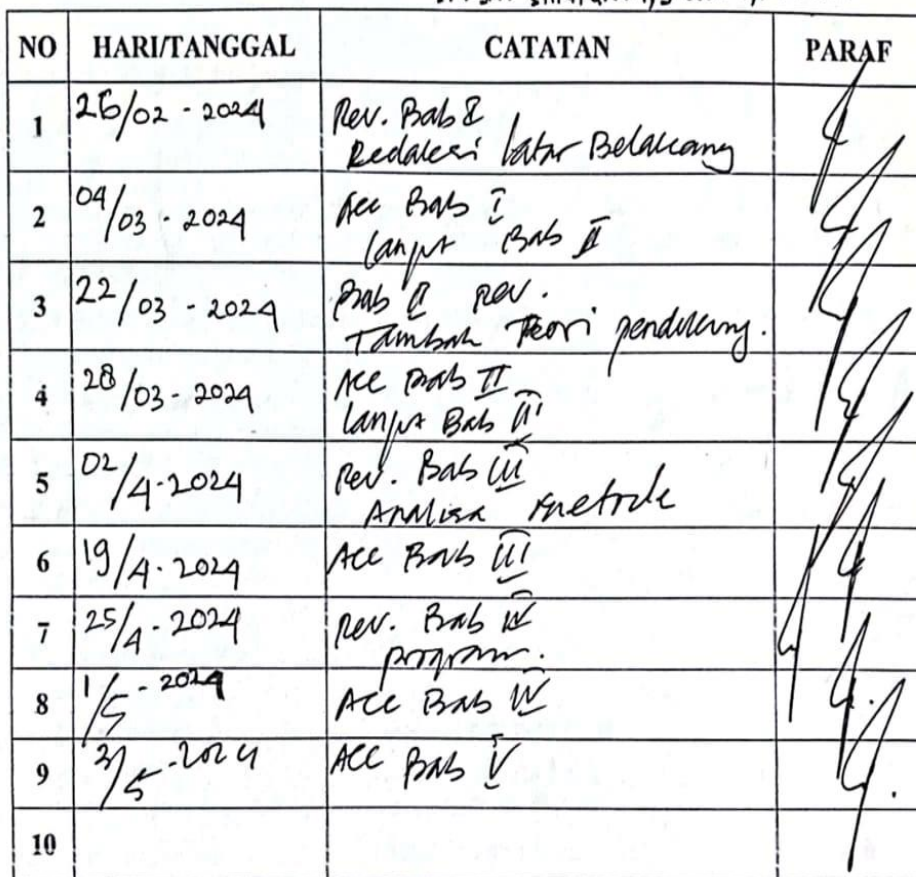 NO HARI/TANGGAL CATATAN PARAF
1 26/02 - 2024 Rev. Bab I
Redaksi latar Belakang
2 04/03 - 2024 Acc Bab I
lanjut Bab II
3 22/03 - 2024 Bab II rev.
Tambah Teori pendukung.
4 28/03 - 2024 Acc Bab II
lanjut Bab III
5 02/4 - 2024 Rev. Bab III
Analisa metode
6 19/4 - 2024 Acc Bab III
7 25/4 - 2024 Rev. Bab IV
program.
8 1/5 - 2024 Acc Bab IV
9 3/5 - 2024 Acc Bab V
10